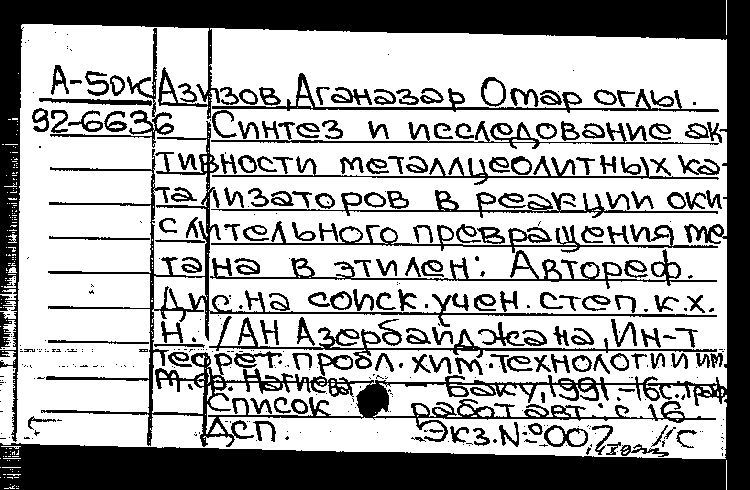 А-50К Азизов, Аганазар Омар оглы.
92-6636 Синтез и исследование ак-
тивности металлцеолитных ка-
тализаторов в реакции оки-
слительного превращения ме-
тана в этилен: Автореф.
Дис. на соиск. учен. степ. к.х.
н. /АН Азербайджана, Ин-т
теорет. пробл. хим. технологии им.
М.ф. Нагиева — Баку, 1991. - 16с.: граф.
Список работ авт.: с. 16
ДСП. Экз. №007